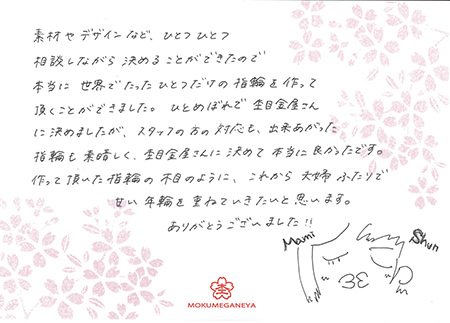 素材やデザインなど、ひとつひとつ
相談しながら決めることができたので
本当に世界でたったひとつだけの指輪を作って
頂くことができました。ひとめぼれで杢目金屋さん
に決めましたが、スタッフの方の対応も、出来あがった
指輪も素晴しく、杢目金屋さんに決めて本当に良かったです。
作って頂いた指輪の木目のように、これから夫婦ふたりで
せい年輪を重ねていきたいと思います。
ありがとうございました!!
Mami
Shun
MOKUMEGANEYA